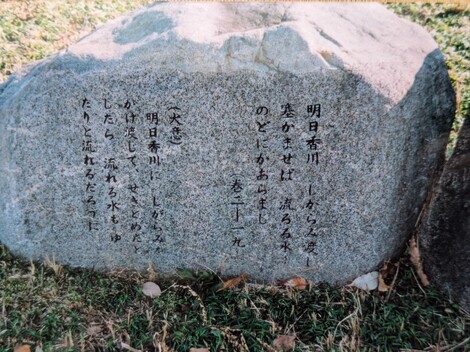 明日香川 しがらみ渡し
塞かませば 流るる水
のどにかあらまし
巻二ー一九
(大意)
明日香川に しがらみ
かけ渡して、せきとめたと
したら、流れる水もゆ
たりと流れるだろうに